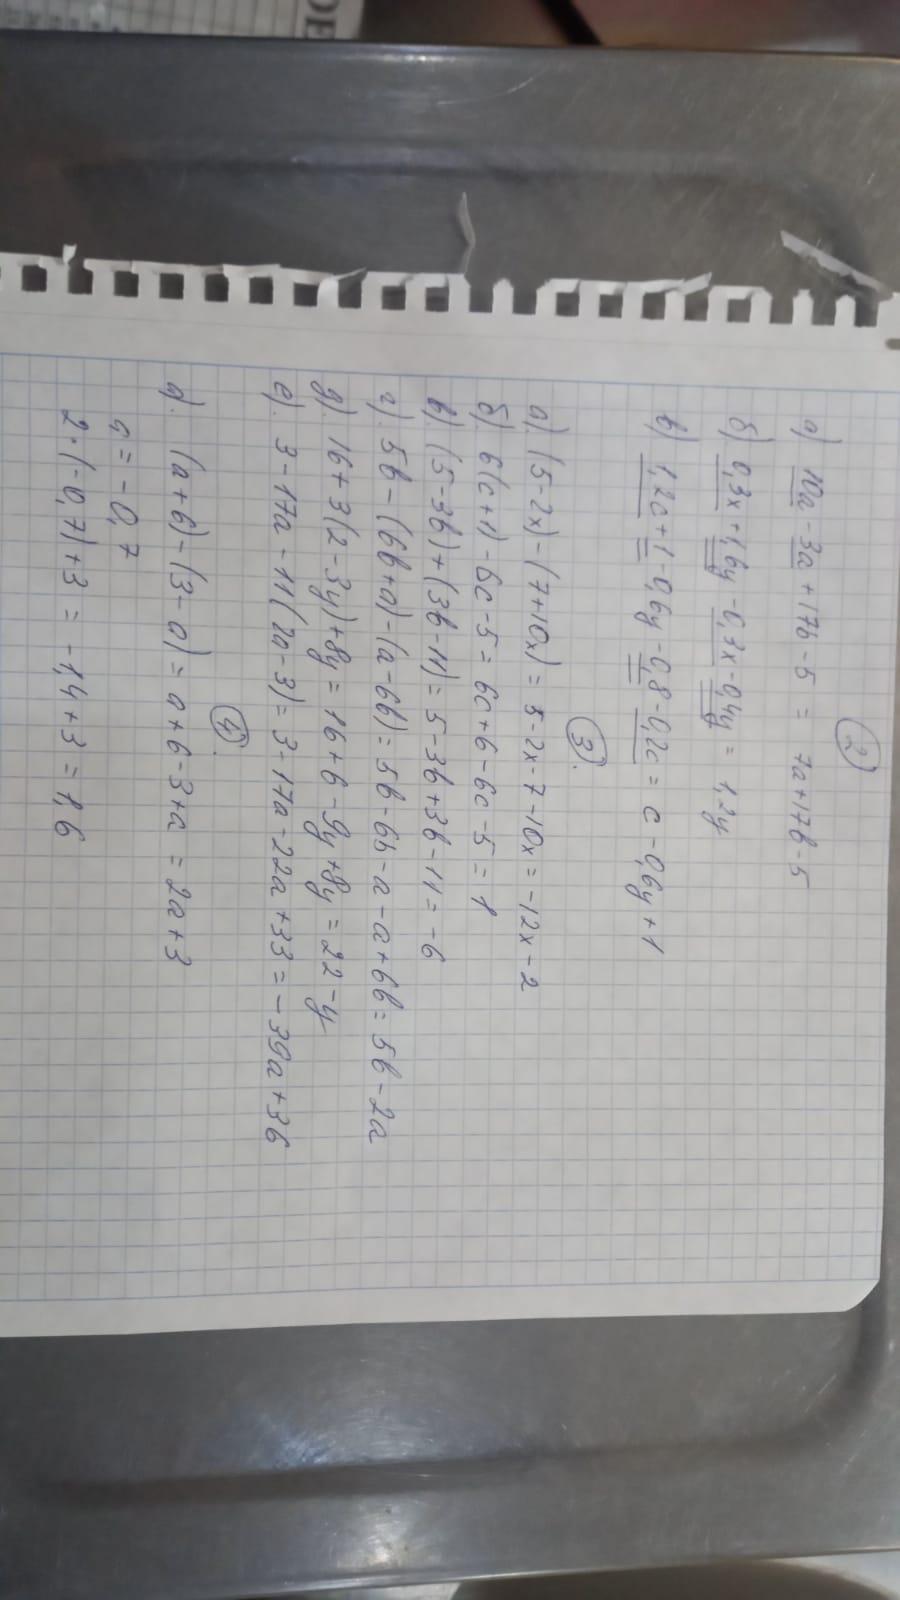 2
а) 10a - 3a + 17b - 5 = 7a + 17b - 5
б) 0,3x + 1,6y - 0,7x - 0,4y = 1,2y
в) 1,2c + 1 - 0,6y - 0,8 - 0,2c = c - 0,6y + 1
3.
а). (5-2x) - (7+10x) = 5-2x-7-10x = -12x-2
б). 6(c+1) - 6c-5 = 6c+6-6c-5 = 1
в). (5-3b) + (3b-11) = 5-3b+3b-11 = -6
г). 5b - (6b+a) - (a-6b) = 5b-6b-a-a+6b = 5b-2a
д). 16+3(2-3y)+8y = 16+6-9y+8y = 22-y
е). 3-17a-11(2a-3) = 3-17a-22a+33 = -39a+36
4.
а). (a+6)-(3-a) = a+6-3+a = 2a+3
a = -0,7
2·(-0,7)+3 = -1,4+3 = 1,6